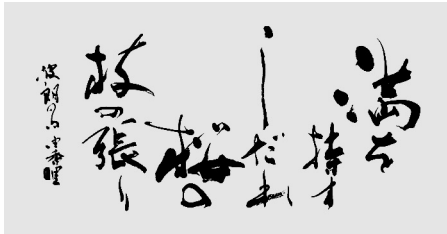 満を
持す
しだれ
桜の
枝の張り